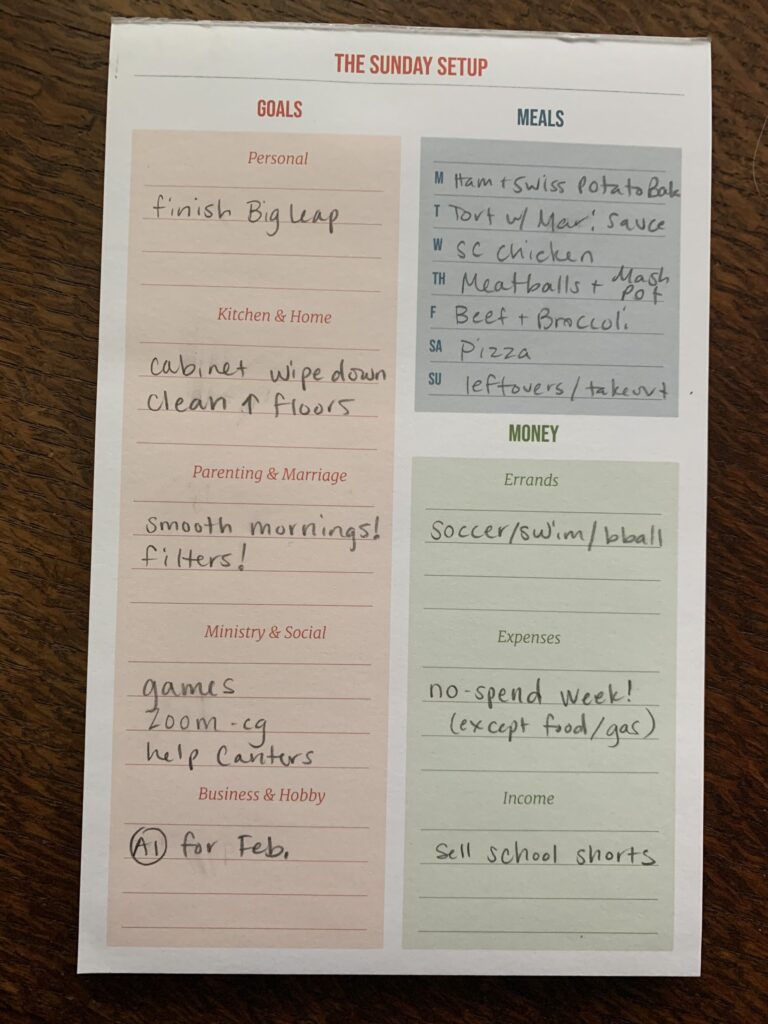 THE SUNDAY SETUP
GOALS
Personal
finish Big leap
Kitchen & Home
cabinet wipe down
clean ↑ floors
Parenting & Marriage
smooth mornings!
filters!
Ministry & Social
games
zoom - cg
help Canters
Business & Hobby
A1 for Feb.
MEALS
M Ham + Swiss Potato Bak
T Tort w/ Mari Sauce
W SC Chicken
TH Meatballs + Mash
Pot
F Beef + Broccoli
SA Pizza
SU leftovers/takeout
MONEY
Errands
soccer/swim/bball
Expenses
no-spend week!
(except food/gas)
Income
sell school shorts